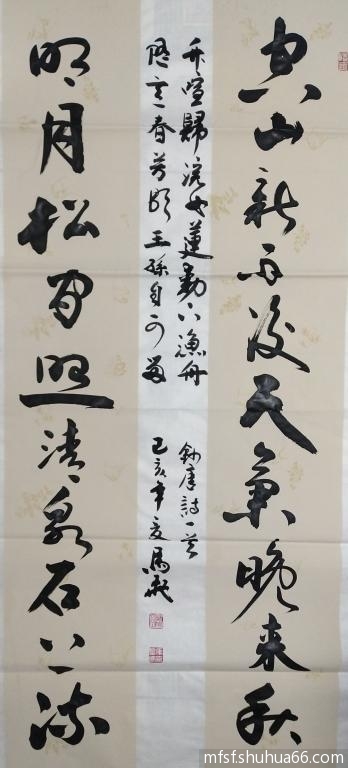 空山新雨後天氣晚来秋
明月松間照清泉石上流
竹喧歸浣女蓮動下漁舟
随意春芳歇王孫自可留
唐詩一首
己亥年夏馬
mfsf.shuhua66.com